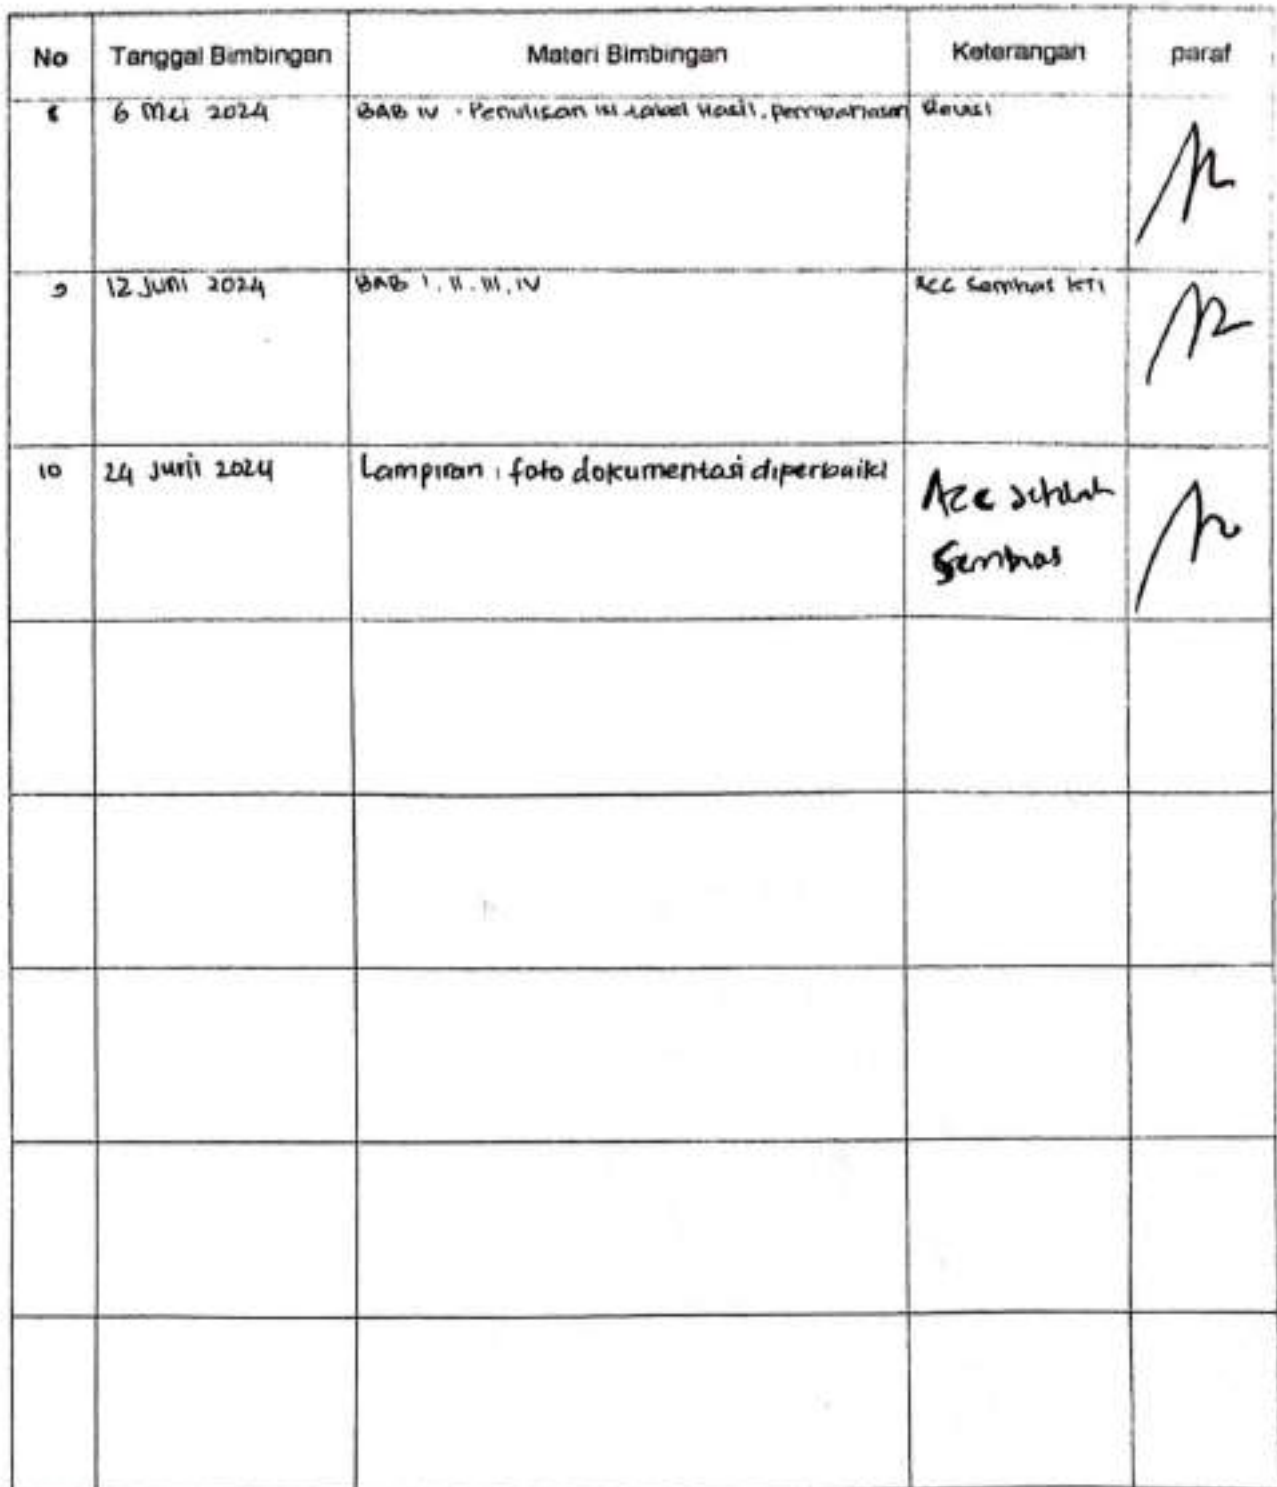 No Tanggal Bimbingan Materi Bimbingan Keterangan paraf
8 6 Mei 2024 BAB IV : Penulisan isi tabel Hasil, pembahasan Revisi
9 12 Juni 2024 BAB I, II, III, IV ACC Semhas KTI
10 24 Juni 2024 Lampiran : foto dokumentasi diperbaiki Acc setelah
Semhas